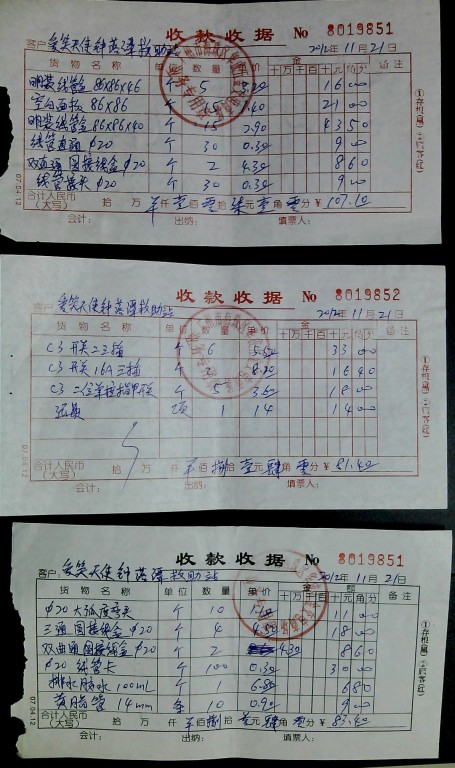 收款收据 No 8019851
客户 爱笑天使钟落潭救助站 2012年11月21日
货物名称 单位 数量 单价 金额 备注
十万千百十元角分
明装线盒 86x86x46 个 5 3.20 16 00
空白面板 86x86 个 15 1.40 21 00
明装线盒 86x86x40 个 15 2.90 43 50
线管直通 φ20 个 30 0.30 9 00
双直通圆接线盒 φ20 个 2 4.30 8 60
线管 φ20 个 30 0.30 9 00
合计人民币(大写) 拾 万 仟 壹佰 零拾 柒元 壹角 零分 ¥ 107.10
会计: 出纳: 填票人:
①存根(黑)
07.04.12
收款收据 No 8019852
客户: 爱笑天使钟落潭救助站 2012年11月21日
货物名称 单位 数量 单价 金额 备注
十万千百十元角分
C3 开关二三插 个 6 5.50 33 00
C3 开关 16A 三插 个 2 8.20 16 40
C3 二位单控指甲开关 个 5 3.60 18 00
项 1 14 14 00
合计人民币(大写) 拾 万 仟 佰 捌拾 壹元 肆角 零分 ¥ 81.40
会计: 出纳: 填票人:
07.04.12
收款收据 No 8019851
客户: 爱笑天使钟落潭救助站 2012年11月21日
货物名称 单位 数量 单价 金额 备注
十万千百十元角分
φ20 大弧度弯头 个 10 1.10 11 00
三通圆接线盒 φ20 个 4 4.50 18 00
双曲通圆接线盒 φ20 个 2 4.30 8 60
φ20 线管卡 个 100 0.30 30 00
排水胶水 100mL 个 1 6.80 6 80
黄腊管 14mm 条 10 0.90 9 00
合计人民币(大写) 拾 万 仟 佰 捌拾 元 肆角 零分 ¥ 83.40
会计: 出纳: 填票人:
07.04.12